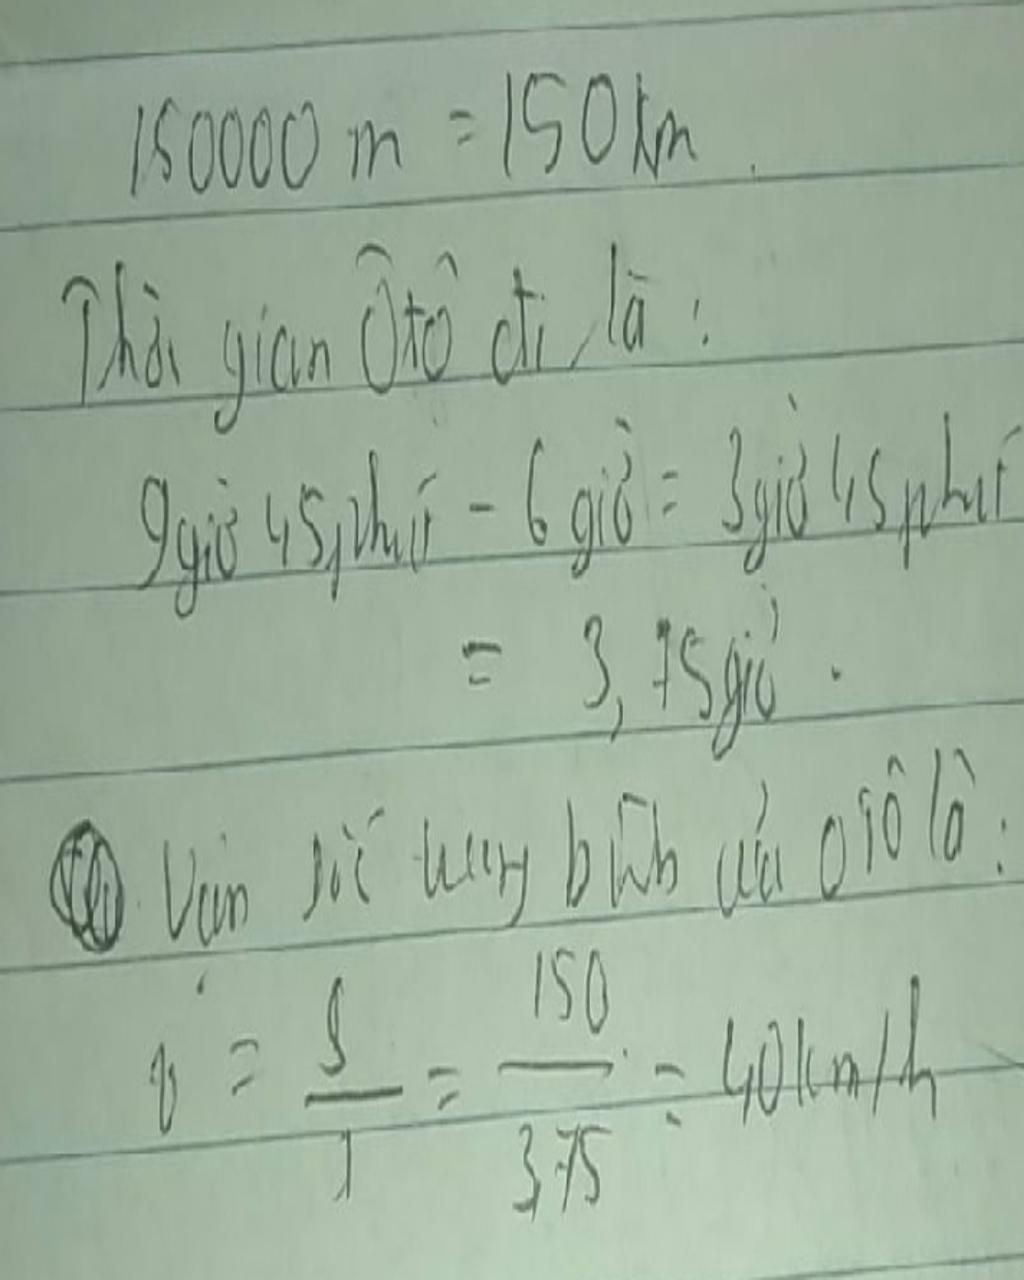 150000 m = 150 km
Thời gian Ôtô đi là :
9 giờ 45 phút - 6 giờ = 3 giờ 45 phút
= 3,75 giờ .
Vận tốc trung bình của ô tô là :
v = S = 150 = 40 km/h
t 3,75